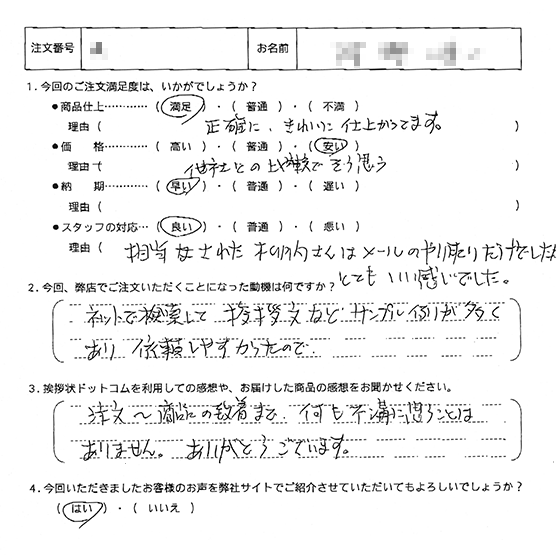 注文番号 お名前
1.今回のご注文満足度は、いかがでしょうか？
●商品仕上………… ( 満足 ) ・ ( 普通 ) ・ ( 不満 )
理由 ( 正確に、きれいに仕上がってます。 )
●価　格………… ( 高い ) ・ ( 普通 ) ・ ( 安い )
理由 ( 他社との比較でそう思う )
●納　期………… ( 早い ) ・ ( 普通 ) ・ ( 遅い )
理由 ( )
●スタッフの対応… ( 良い ) ・ ( 普通 ) ・ ( 悪い )
理由 ( 担当 された さんはメールのやり取りだけでしたが
とてもいい感じでした。
2.今回、弊店でご注文いただくことになった動機は何ですか？
ネットで検索して 挨拶文など サンプル例が多く
あり 依頼しやすかったので.
3.挨拶状ドットコムを利用しての感想や、お届けした商品の感想をお聞かせください。
注文〜商品の到着まで、何も不満に思うことは
ありません。 ありがとうございます。
4.今回いただきましたお客様のお声を弊社サイトでご紹介させていただいてもよろしいでしょうか？
( はい ) ・ ( いいえ )